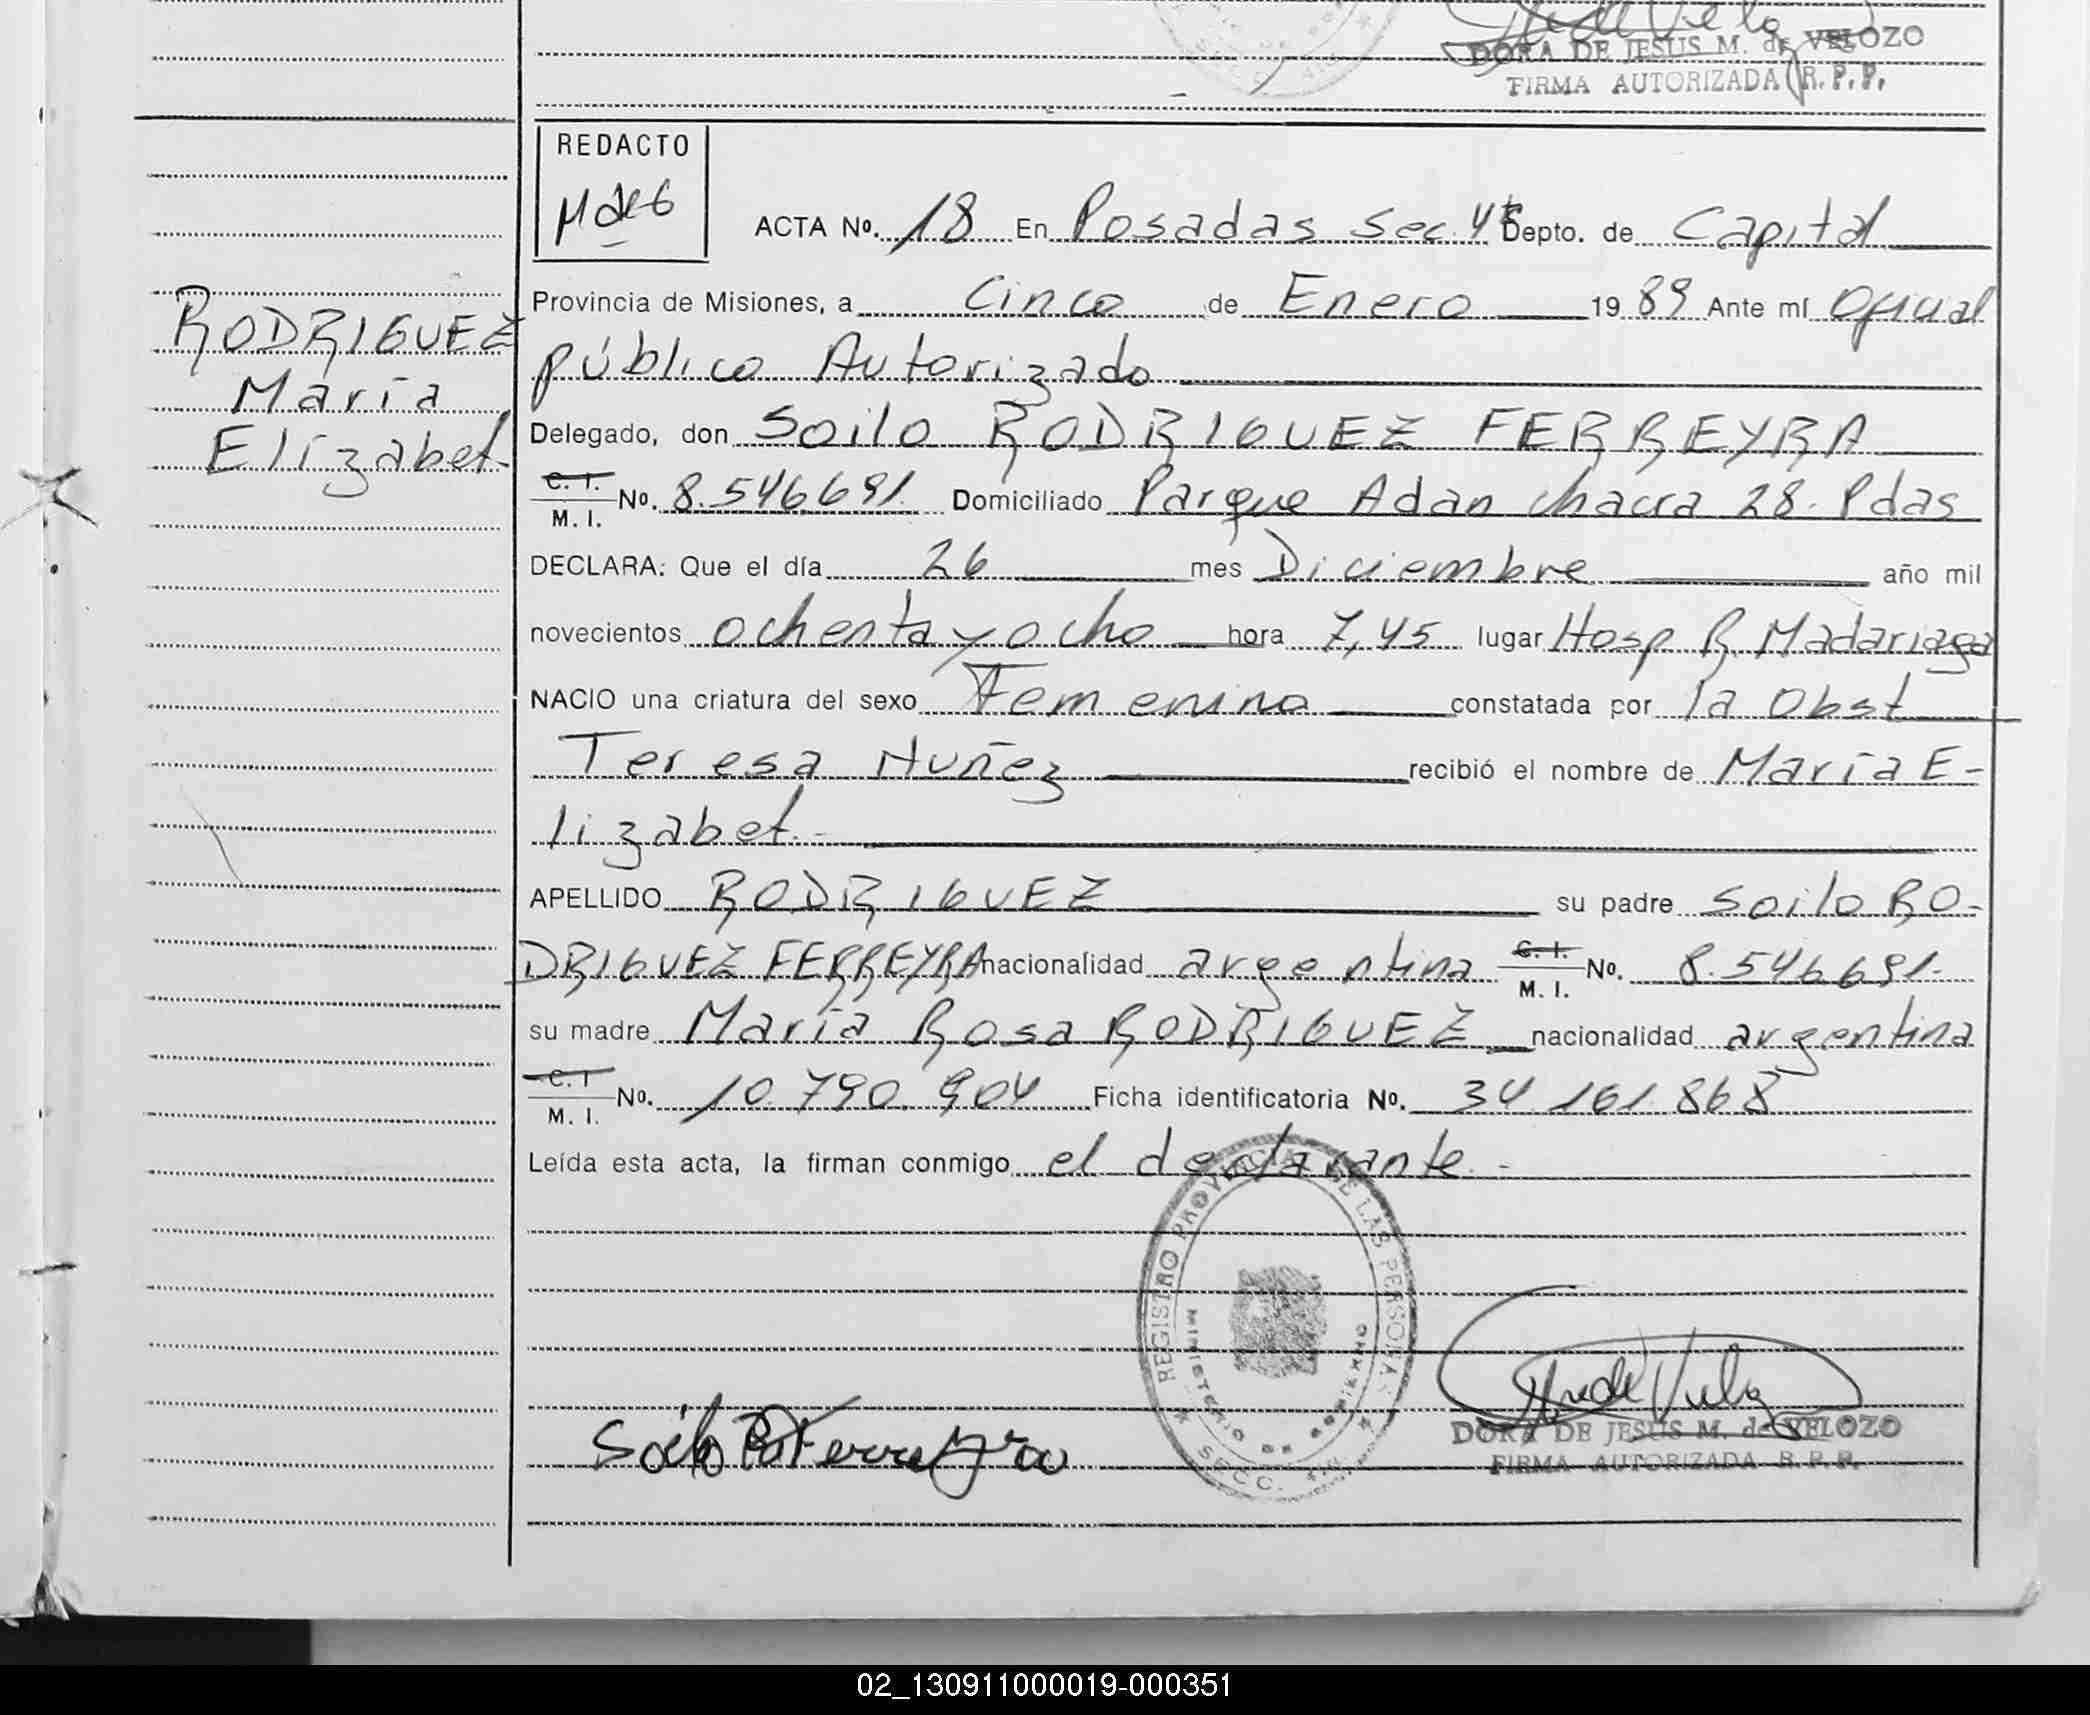 DORA DE JESUS M. de VELOZO
FIRMA AUTORIZADA R. P. P.
REDACTO
ACTA Nº. 18 En Posadas Sec. 4ta Depto. de Capital
Provincia de Misiones, a Cinco de Enero 1989 Ante mí Oficial
público Autorizado
RODRIGUEZ
María
Elizabet
Delegado, don Soilo RODRIGUEZ FERREYRA
C. I.
M. I. Nº. 8.546.691. Domiciliado Parque Adan chacra 28. Pdas
DECLARA: Que el día 26 mes Diciembre año mil
novecientos ochenta y ocho hora 7,45 lugar Hosp R. Madariaga
NACIO una criatura del sexo Femenino constatada por la Obst
Teresa Nuñez recibió el nombre de María E-
lizabet.-
APELLIDO RODRIGUEZ su padre Soilo RO-
DRIGUEZ FERREYRA nacionalidad argentina C. I.
M. I. Nº. 8.546.691.
su madre María Rosa RODRIGUEZ nacionalidad argentina
C. I
M. I. Nº. 10.790.904 Ficha identificatoria Nº. 34.161.868
Leída esta acta, la firman conmigo el declarante.-
REGISTRO PROVINCIAL DE LAS PERSONAS
MINISTERIO DE GOBIERNO
SECC. 4ta
Soilo R Ferreyra
DORA DE JESUS M. de VELOZO
FIRMA AUTORIZADA R. P. P.
02_130911000019-000351